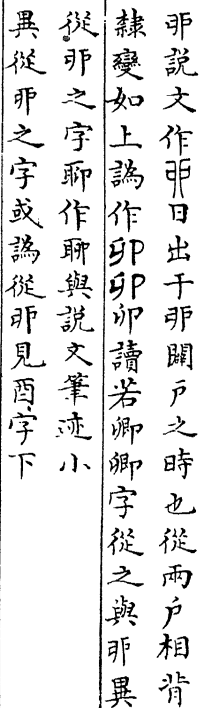 戼說文作丣日出于戼闢戶之時也從兩戶相背
隸變如上譌作卯夘卯讀若卿卿字從之與戼異
從戼之字聊作聊與說文筆迹小
異從戼之字或譌從丣見酉字下